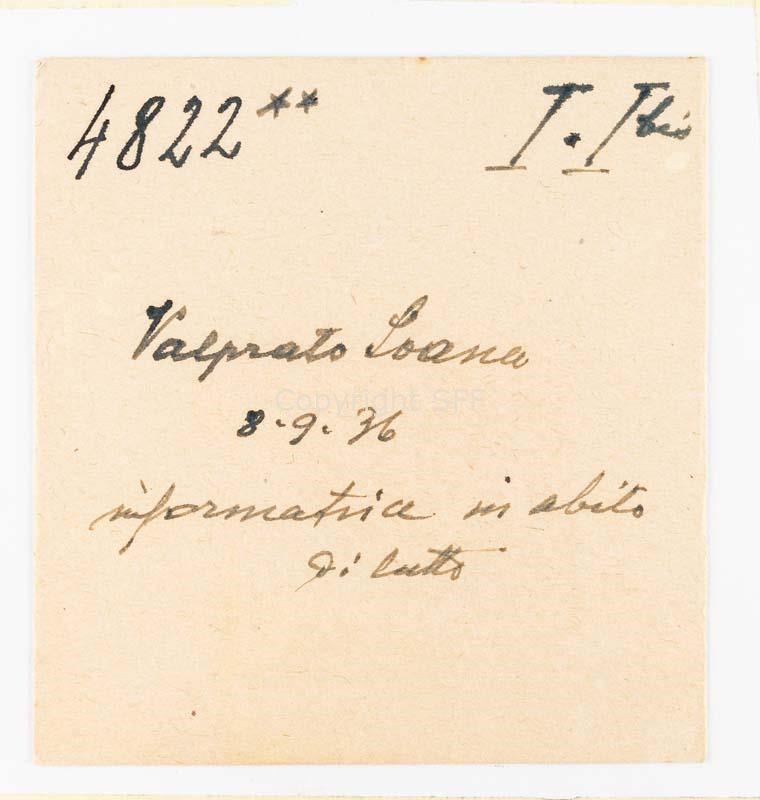 4822** I. I bis
Valprato Soana
Copyright SPF
8.9.36
informatrice in abito
di lutto